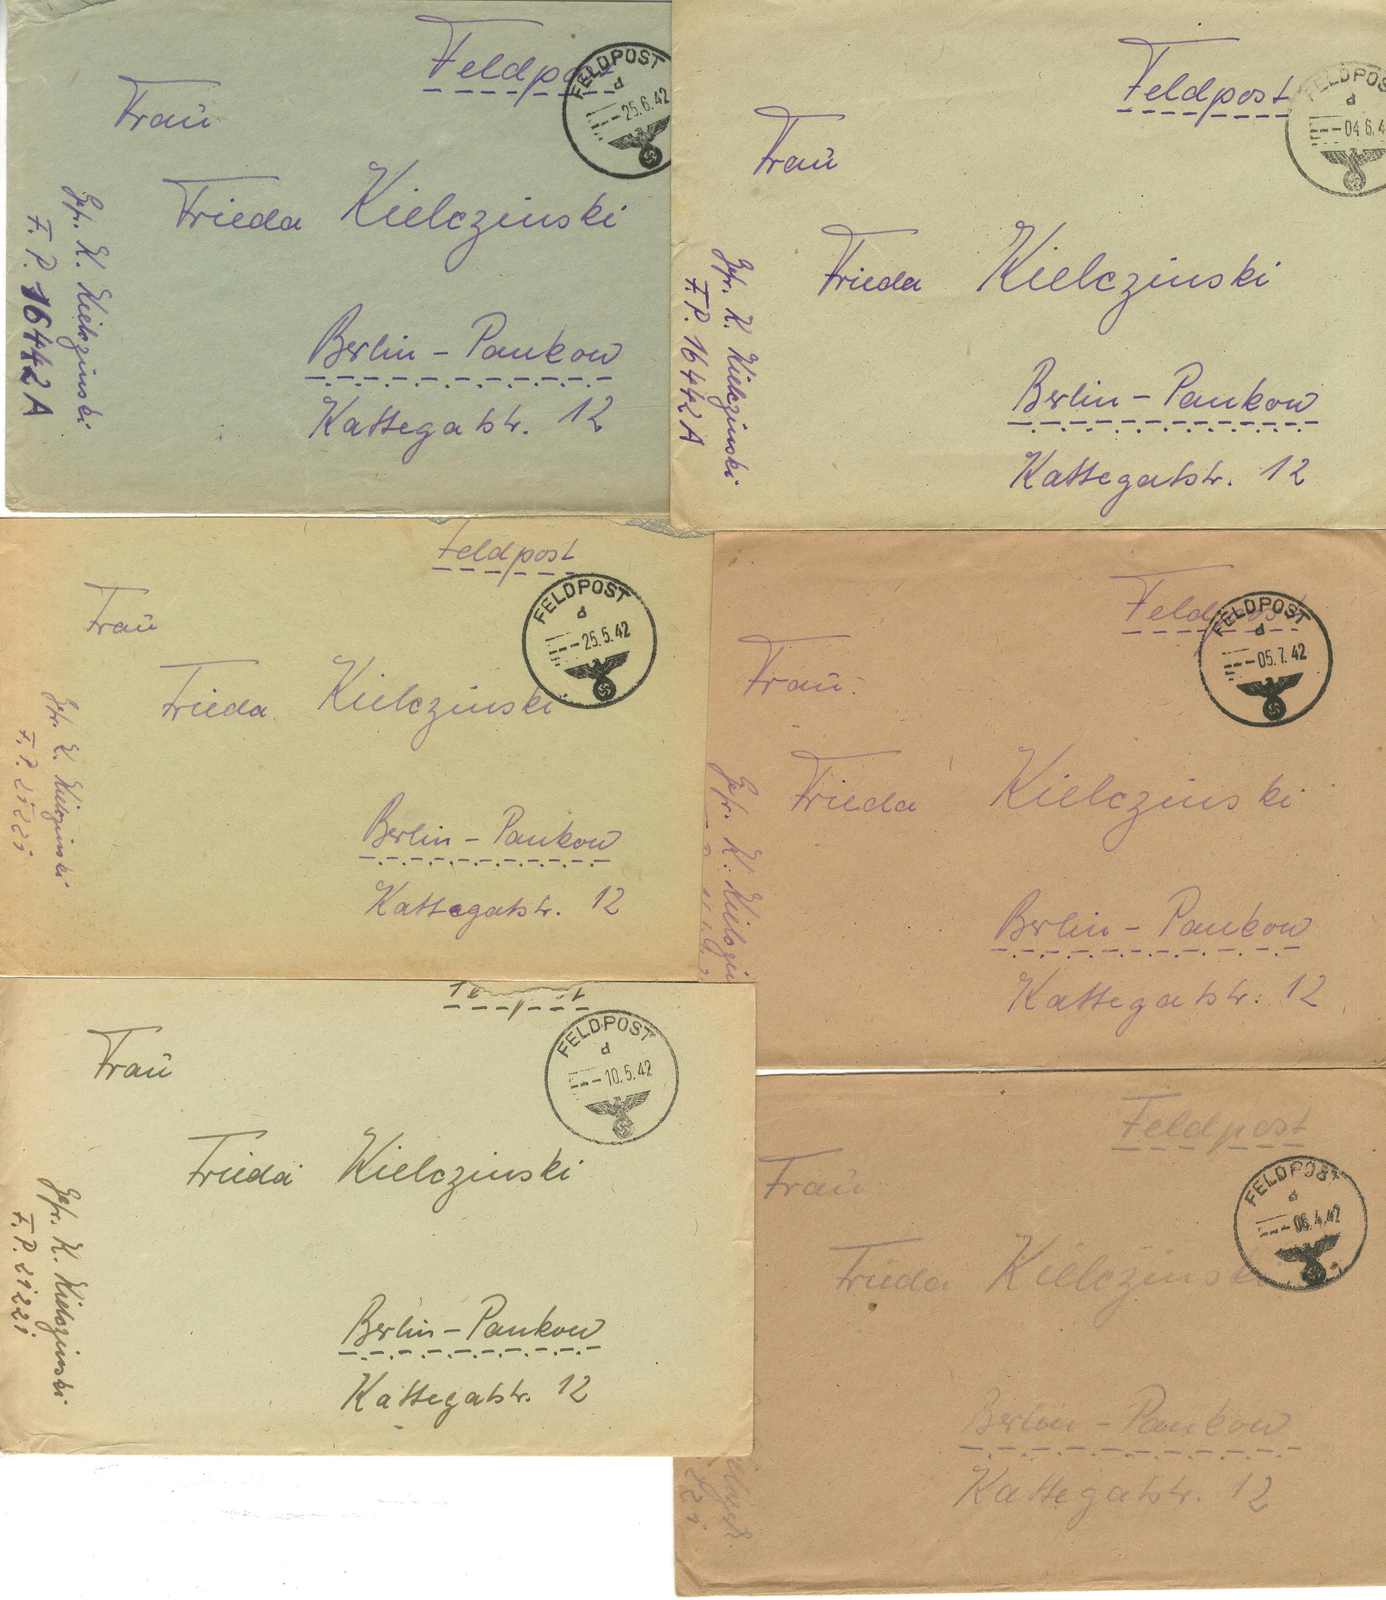 Feldpost
FELDPOST
d
25.6.42
Frau
Frieda Kielczinski
Berlin - Pankow
Kattegatstr. 12
Gefr. K. Kielczinski
F. P. 16442 A
Feldpost
FELDPOS
d
04 6.4
Frau
Frieda Kielczinski
Berlin - Pankow
Kattegatstr. 12
Gefr. K. Kielczinski
F. P. 16442 A
Feldpost
FELDPOST
d
25.5.42
Frau
Frieda Kielczinski
Berlin - Pankow
Kattegatstr. 12
Gefr. K. Kielczinski
F. P.
Feldpost
FELDPOST
d
05.7.42
Frau
Frieda Kielczinski
Berlin - Pankow
Kattegatstr. 12
Gefr. K. Kielczin
FELDPOST
d
10.5.42
Frau
Frieda Kielczinski
Berlin - Pankow
Kattegatstr. 12
Gefr. K. Kielczinski
F. P.
Feldpost
FELDPOST
d
06.4.42
Frau
Frieda Kielczinski
Berlin - Pankow
Kattegatstr. 12